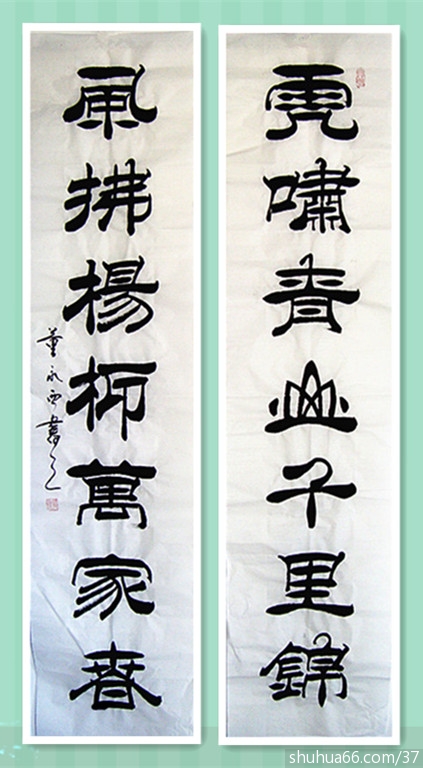 虎嘯青山千里錦
風拂楊柳萬家春
董永西書之
shuhua66.com/37